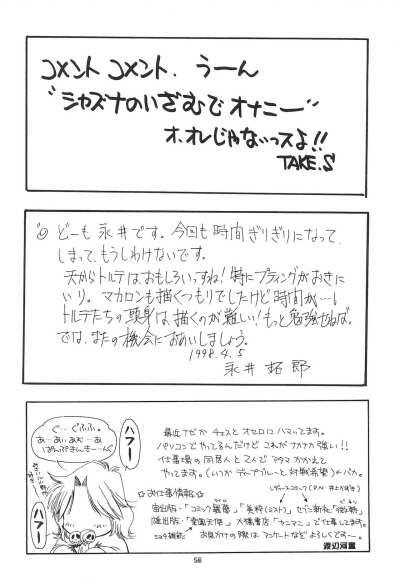 コメント コメント. うーん
"シャズナのいざむでオナニー"
オ、オレじゃないっスよ!!
TAKE.S
どーも永井です。今回も時間ぎりぎりになって
しまって、もうしわけないです。
天からトルテはおもしろいっすね!特にプティングがお気に
いり。マカロンも描くつもりでしたけど時間が…し
トルテたちの頭身は、描くのが難しい!もっと勉強せねば。
では、またの機会におあいしましょう。
1998.4.5
永井 拓郎
ぐ…ぐふふ。
あー…あいあむーあ
ぱんぷきんきーん
ハフー
ハフー
最近ナゼか チェスと オセロに ハマッてます。
パソコンで やってるんだけど これが ナカナカ強い!!
仕事場の 同居人と 2人で アタマ かかえて
やってます。(いつか ディープブルーと 対戦希望)←バカ。
☆お仕事情報☆
でお仕事してます。
お見かけの際は アンケートなど よろしくですー。
渡辺河童
58